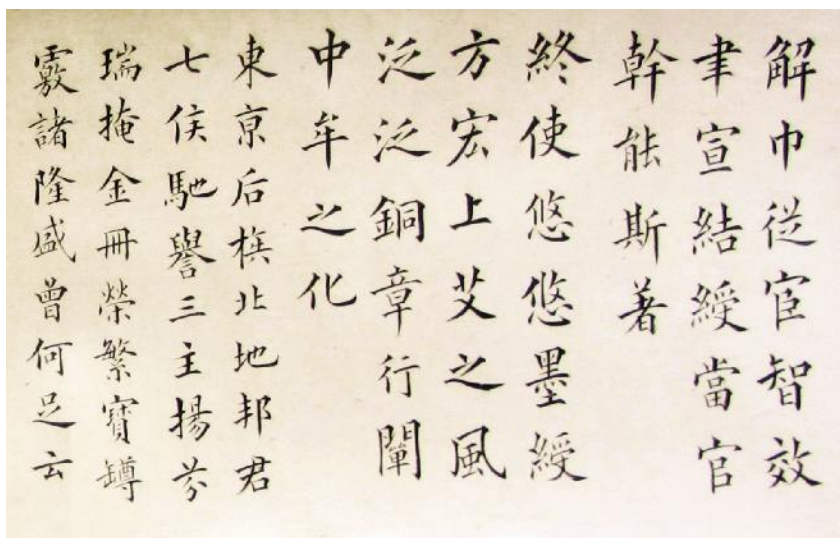 解巾従宦智效
聿宣結綬當官
幹能斯著
終使悠悠墨綬
方宏上艾之風
泛泛銅章行闡
中牟之化
東亰后族北地邦君
七侯馳譽三主揚芬
瑞掩金冊榮繁寶罇
覈諸隆盛曾何足云